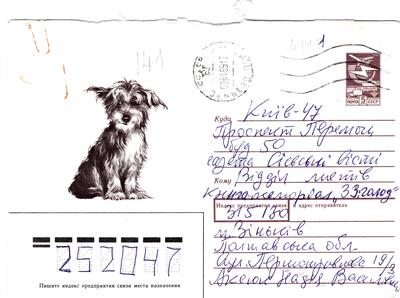 141
1
ПОЧТА СССР
Куда Київ-47
Проспект Перемоги
буд 50
газета Сільські вісті
Кому Відділ листів
Книга-меморіал "33: голод"
Индекс предприятия связи и адрес отправителя
315180
м. Зіньків
Полтавська обл.
252047
Пишите индекс предприятия связи места назначения